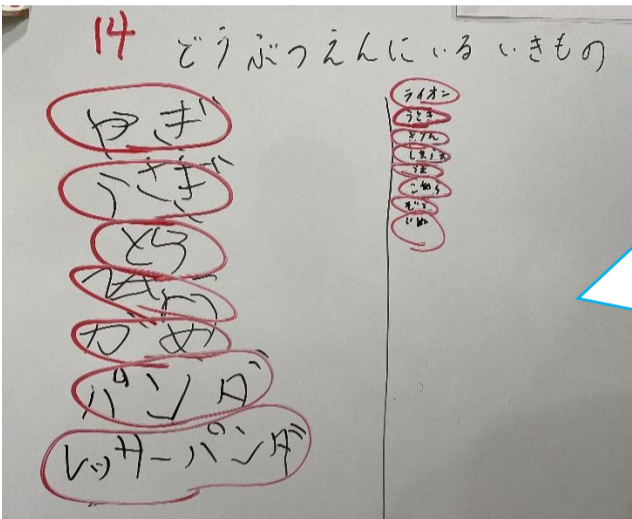 14 どうぶつえんにいるいきもの
やぎ
うさぎ
とら
かめ
パンダ
レッサーパンダ
ライオン
うさぎ
きりん
しまうま
うま
ぞう